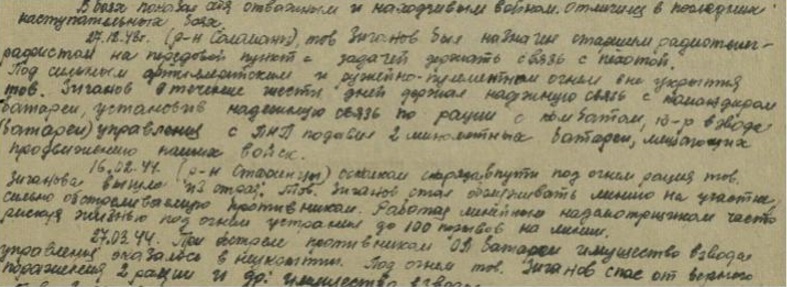 В боях показал себя отважным и находчивым воином. Отличился в последних
наступательных боях.
27.12.43г. (р-н ) тов. Зиганов был назначен старшим радиотеле-
радистом на передовой пункт с задачей держать связь с пехотой.
Под сильным артиллерийским и ружейно-пулеметным огнем вне укрытия
тов. Зиганов в течение шести дней держал надежную связь с командиром
батареи, установив надежную связь по рации с комбатом, к-р взвода
(батареи) управления с ПНП подавил 2 минометных батареи, мешающих
продвижению наших войск.
16.02.44. (р-н ) осколком снаряда в пути под огнем рация тов.
Зиганова вышла из строя. Тов. Зиганов стал обслуживать линию на участке,
сильно обстреливаемую противником. Работая линейным надсмотрщиком часто
рискуя жизнью под огнем устранил до 100 порывов на линии.
27.03.44. При обстреле противником ОП батареи имущество взвода
управления оказалось в Под огнем тов. Зиганов спас от верного
поражения 2 рации и др. имущество взвода